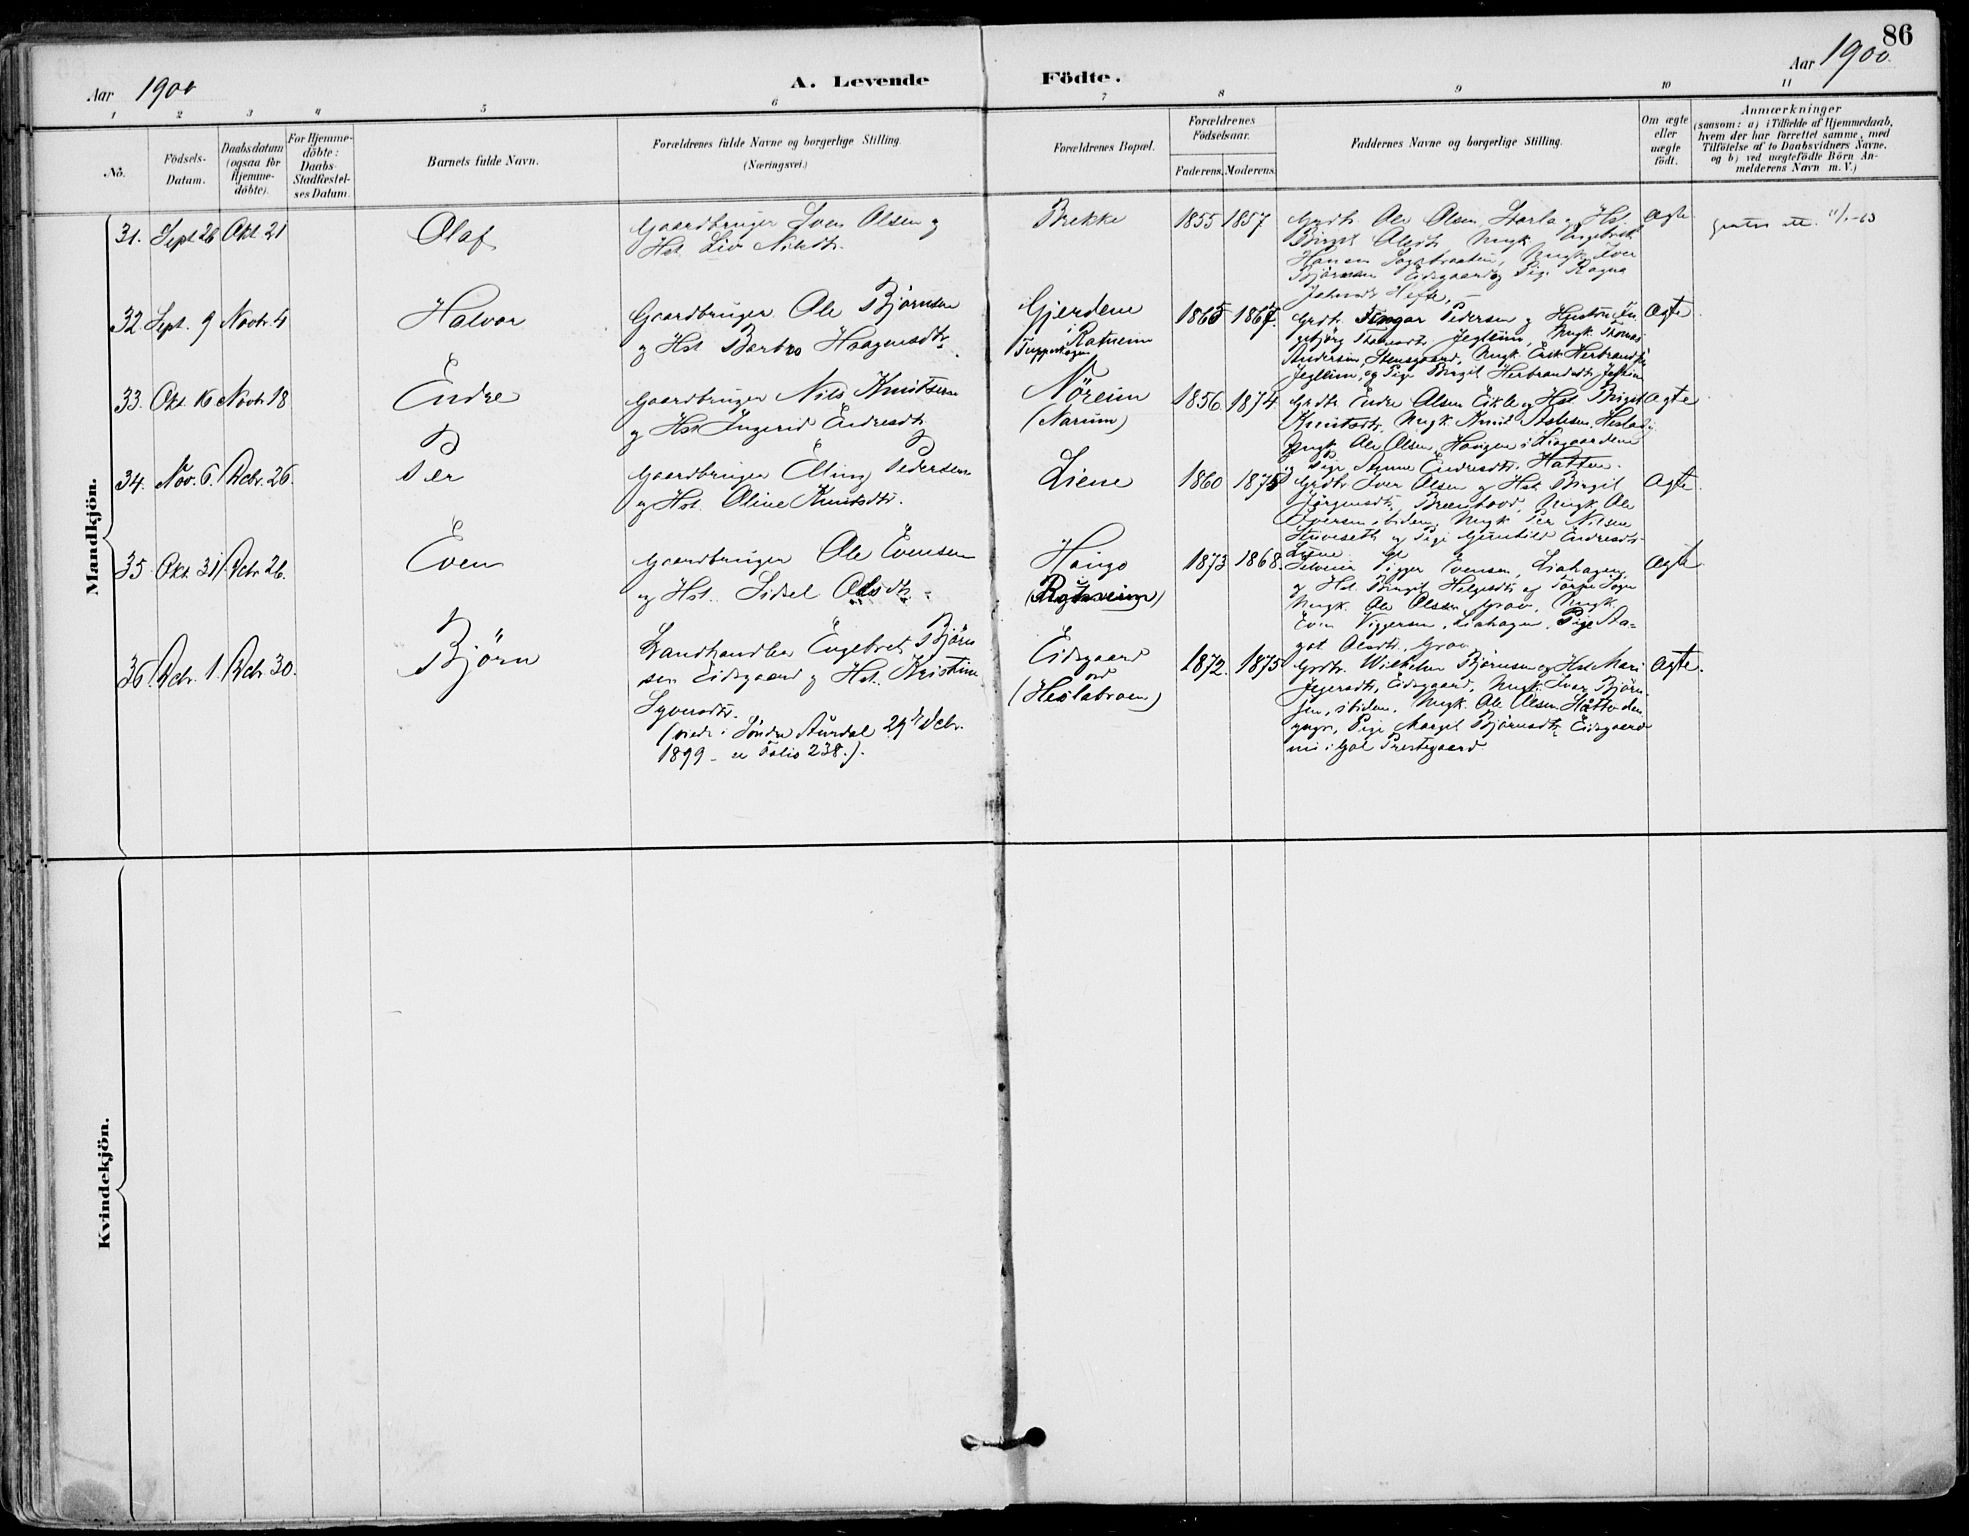 86
Aar 1900
A. Levende Födte.
Aar 1900.
1 2 3 4 5 6 7 8 9 10 11
No.
Födsels-Datum.
Daabsdatum (ogsaa for Hjemme-döbte).
For Hjemme-döbte: Daabs-Stadfæstel-ses Datum.
Barnets fulde Navn.
Forældrenes fulde Navne og borgerlige Stilling. (Næringsvei.)
Forældrenes Bopæl.
Forældrenes Födselsaar.
Faderens. Moderens.
Faddernes Navne og borgerlige Stilling.
Om ægte eller uægte födt.
Anmærkninger
(saasom: a) i Tilfælde af Hjemmedaab,
hvem der har forrettet samme, med
Tilföielse af to Daabsvidners Navne,
og b) ved uægtefödte Börn An-
melderens Navn m. V.)
Mandkjön.
31. Sept 26 Okt 21
Olaf
Gaardbruger Iver Olsen og
Hst. Liv Nilsdtr.
Brekke
1855 1857
Grdbr. Ole Olsen og Hst.
Birgit Olsdtr. Ungk. Engebret
Hansen Ungk. Iver
Björnsen Eidsgaard og Pige Ragna
Ægte
32. Sept. 9 Novbr. 4
Halvor
Gaardbruger Ole Björnsen
og Hst. Barbro Haagensdtr.
Gjerdene
i Ratneim
1865 1867.
Grdbr. Pedersen og Hustru In-
gebjörg Jegleim, Ungk. Thomas
Andersen, Stensgaard, Ungk. Erik Herbrandsen
Jegleim, og Pige Birgit Herbrandsdtr.
Ægte
33. Okt. 16 Novbr. 18
Endre
Gaardbruger Nils Knutsen
og Hst. Ingerid Endresdtr.
Nöreim
(Narum)
1856. 1874
Grdbr. Endre Olsen Eikle og Hst. Birgit
Knutsdtr. Ungk. Knut
Ungk. Ole Olsen Haugen i Liagardene
og Pige Anne Endresdtr. Hatten.
Ægte
34. Nov. 6. Decbr. 26.
Per
Gaardbruger Elling Pedersen
og Hst. Oline Knutsdtr.
Liene
1860 1875
Grdbr. Iver Olsen og Hst. Birgit
Jörgensdtr. Ungk. Ole
Iversen, ibidem, Ungk. Per Nilsen
og Pige Gunhild Endresdtr.
Liene.
Ægte.
35. Okt. 31. Decbr. 26.
Even
Gaardbruger Ole Evensen
og Hst. Sidsel Olsdtr.
Haugo
1873 1868.
Vigger Evensen, Liahagen
og Hst. Birgit Helgesdtr. af Torpe Sogn
Ungk. Ole Olsen Grøv, Ungk.
Even Viggersen, Liahagen, Pige Aa-
got Olsdtr. Grøv
Ægte
36. Decbr. 1. Decbr. 30.
Björn
Landhandler Engebret Björn-
sen Eidsgaard og Hst. Kristine
Syversdtr.
(viede i Söndre Aurdal 29de Decbr.
1899 – se Folio 238.).
Eidsgaard
ved
(Heslabroen)
1872. 1875
Grdbr. Wilhelm Björnsen og Hst. Mari
Jegersdtr. Eidsgaard, Ungk. Ivar Björn-
sen, ibidem, Ungk. Ole Olsen Hätto den
yngr., Pige Margit Björnsdtr. Eidsgaard
nu i Gol Prestegaard
Ægte.
Kvindekjön.